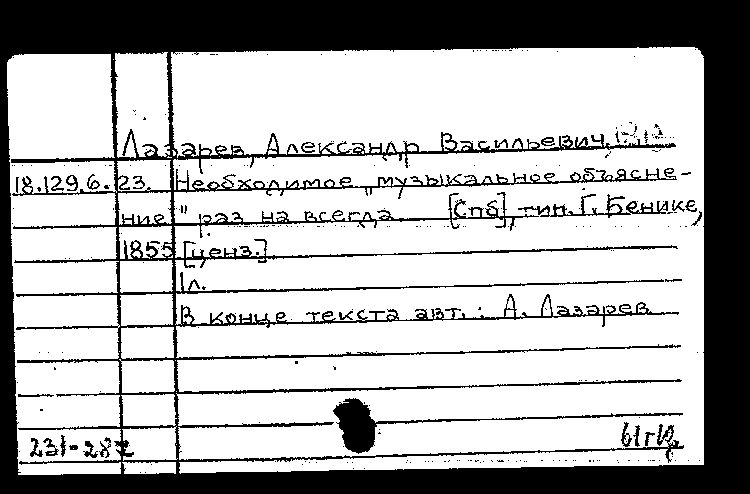 Лазарев, Александр Васильевич.
18.129.6.23. Необходимое „музыкальное объясне-
ние" раз на всегда. [Спб], тип. Г. Бенике,
1855 [ценз.].
1л.
В конце текста авт.: А. Лазарев
231-282